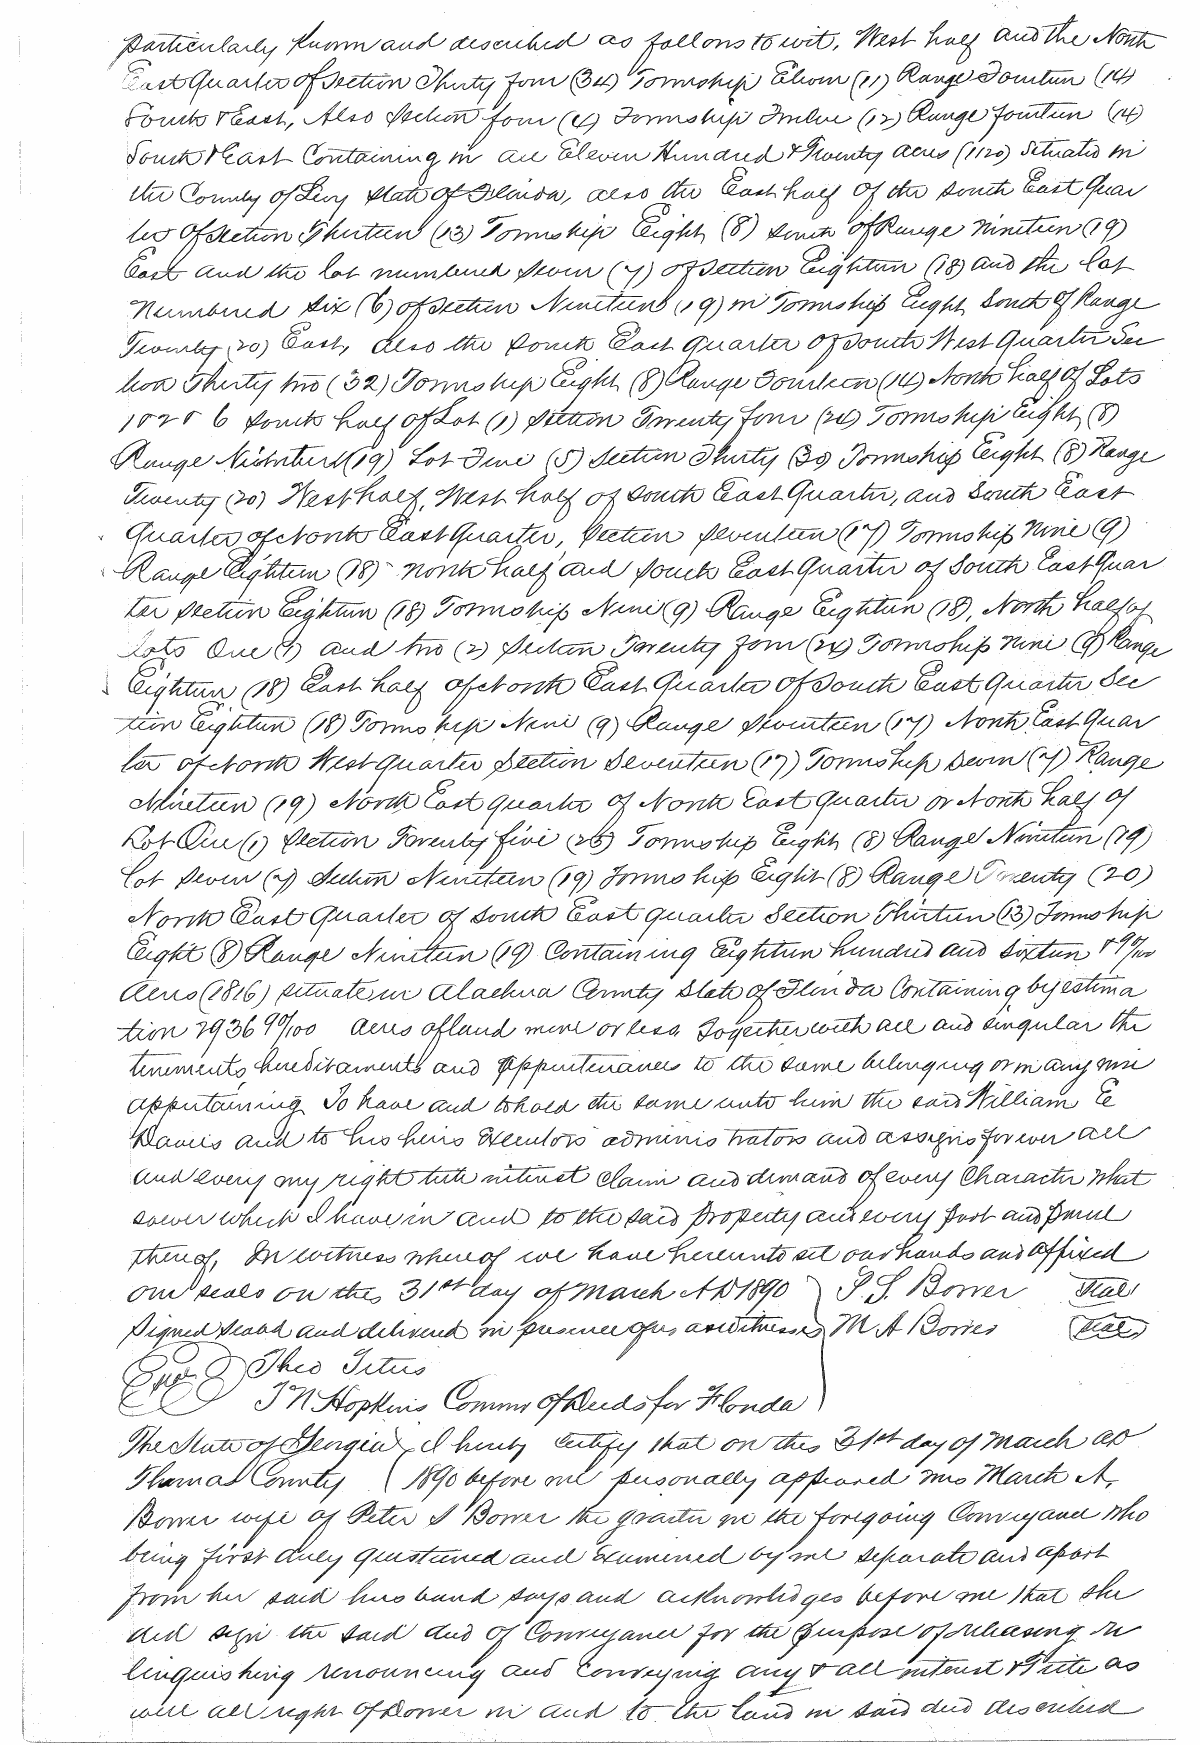 particularly known and described as follows to wit, West half and the North
East Quarter of Section Thirty four (34) Township Eleven (11) Range Fourteen (14)
South & East, Also Section four (4) Township Twelve (12) Range fourteen (14)
South & East Containing in all Eleven Hundred & Twenty Acres (1120) Situated in
the County of Levy State of Florida, also the East half of the South East Quar
ter of Section Thirteen (13) Township Eight (8) South of Range Nineteen (19)
East and the lot numbered Seven (7) of Section Eighteen (18) and the lot
Numbered Six (6) of Section Nineteen (19) in Township Eight South of Range
Twenty (20) East, also the South East quarter of South West Quarter Sec
tion Thirty two (32) Township Eight (8) Range Fourteen (14) North half of Lots
6 South half of Lot (1) Section Twenty four (24) Township Eight (8)
Range (19) Lot Five (5) Section Thirty (30) Township Eight (8) Range
Twenty (20) West half, West half of South East Quarter, and South East
Quarter of North East Quarter, Section Seventeen (17) Township Nine (9)
Range Eighteen (18) North half and South East Quarter of South East Quar
ter Section Eighteen (18) Township Nine (9) Range Eighteen (18), North half of
lots One (1) and two (2) Section Twenty four (24) Township Nine (9) Range
Eighteen (18) East half of North East Quarter of South East Quarter Sec
tion Eighteen (18) Township Nine (9) Range Seventeen (17) North East Quar
ter of North West Quarter Section Seventeen (17) Township Seven (7) Range
Nineteen (19) North East quarter of North East Quarter or North half of
Lot One (1) Section Twenty five (25) Township Eight (8) Range Nineteen (19)
lot Seven (7) Section Nineteen (19) Township Eight (8) Range Twenty (20)
North East Quarter of South East quarter Section Thirteen (13) Township
Eight (8) Range Nineteen (19) Containing Eighteen hundred and Sixteen & 90/100
Acres (1816) situate in Alachua County State of Florida Containing by estima
tion 2936 90/100 acres of land more or less Together with all and singular the
tenements, hereditaments and appurtenances to the same belonging or in any wise
appertaining To have and to hold the same unto him the said William E
Davies and to his heirs Executors administrators and assigns forever all
and every my right title interest claim and demand of every Character what
soever which I have in and to the said property and every part and parcel
thereof, In witness whereof we have hereunto set our hands and affixed
our seals on this 31st day of March AD 1890 P. S. Bower Seal
Signed Seald and delivered in presence of us as witnesses M A Bower Seal
Theo Titus
T N Hopkins Commr of Deeds for Florida
The State of Georgia I hereby certify that on this 31st day of March AD
Thomas County 1890 before me personally appeared Mrs March A.
Bower wife of Peter S Bower the grantor in the foregoing Conveyance who
being first duly questioned and Examined by me separate and apart
from her said husband says and acknowledges before me that she
did sign the said deed of Conveyance for the purpose of releasing re
linquishing renouncing and conveying any & all interest & title as
well all right of Dower in and to the land in said deed described